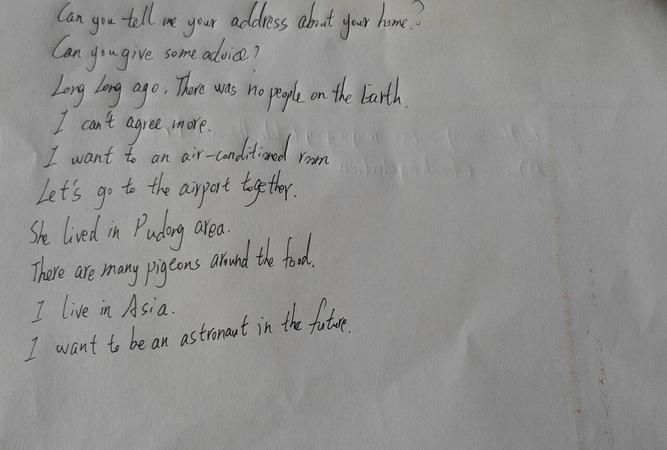 Can you tell me your address about your home?
Can you give some advice?
Long Long ago, There was no people on the Earth.
I can't agree more.
I want to an air-conditioned room
Let's go to the airport together.
She lived in Pudong area.
There are many pigeons around the food.
I live in Asia.
I want to be an astronaut in the future.